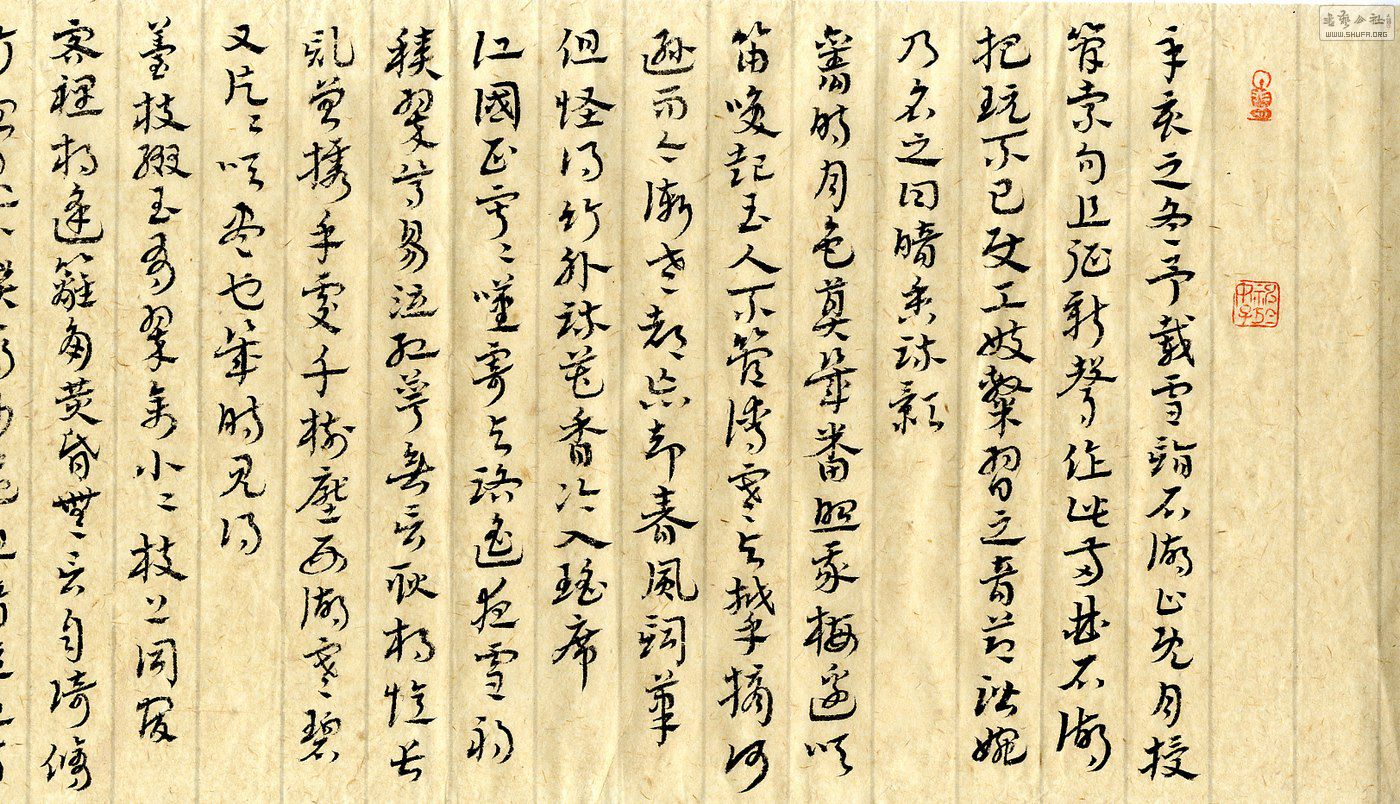 辛亥之冬予載雪詣石湖止既月授
簡索句且征新聲作此兩曲石湖
把玩不已使工妓隸習之音節諧婉
乃名之曰暗香疏影
舊時月色算幾番照我梅邊吹
笛喚起玉人不管清寒與攀摘何
遜而今漸老都忘却春風詞筆
但怪得竹外疏花香冷入瑤席
江國正寂々嘆寄與路遙夜雪初
積翠尊易泣紅萼無言耿相憶長
記曾攜手處千樹壓西湖寒碧
又片々吹盡也幾時見得
苔枝綴玉有翠禽小々枝上同宿
客裡相逢籬角黃昏無言自倚修
WWW.SHUFA.ORG